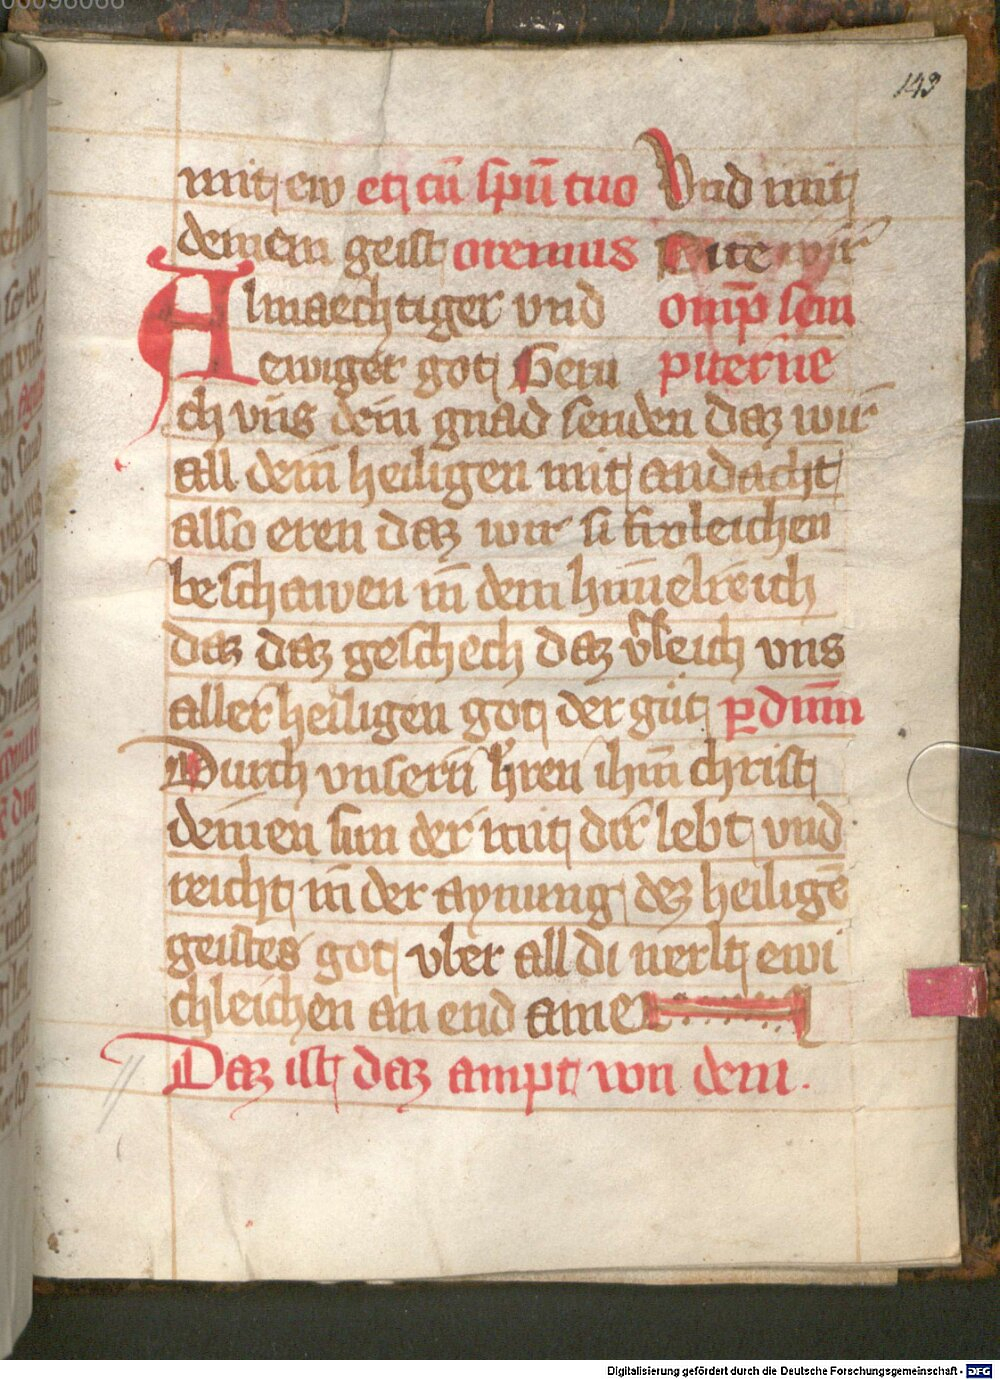 00096066
143
mit ew et cū spū tuo Vnd mit
deinem geist oremus Pite wir
Almaechtiger vnd omīp sem
ewiger got Geru piterne
ch vns dein gnad senden daz wir
all dein heiligen mit andacht
also eren daz wir si froleichen
beschawen in dem himelreich
daz daz geschech daz v̓leich vns
aller heiligen got der güt p̱ dnm̄
Durch vnsern h̓ren ihm̄ christ
deinen sun der mit dir lebt vnd
reicht in der aynung dez heiligē
geistes got vber all di werlt ewi
chleichen an end amen
Daz ist daz ampt von dem.
Digitalisierung gefördert durch die Deutsche Forschungsgemeinschaft - DFG